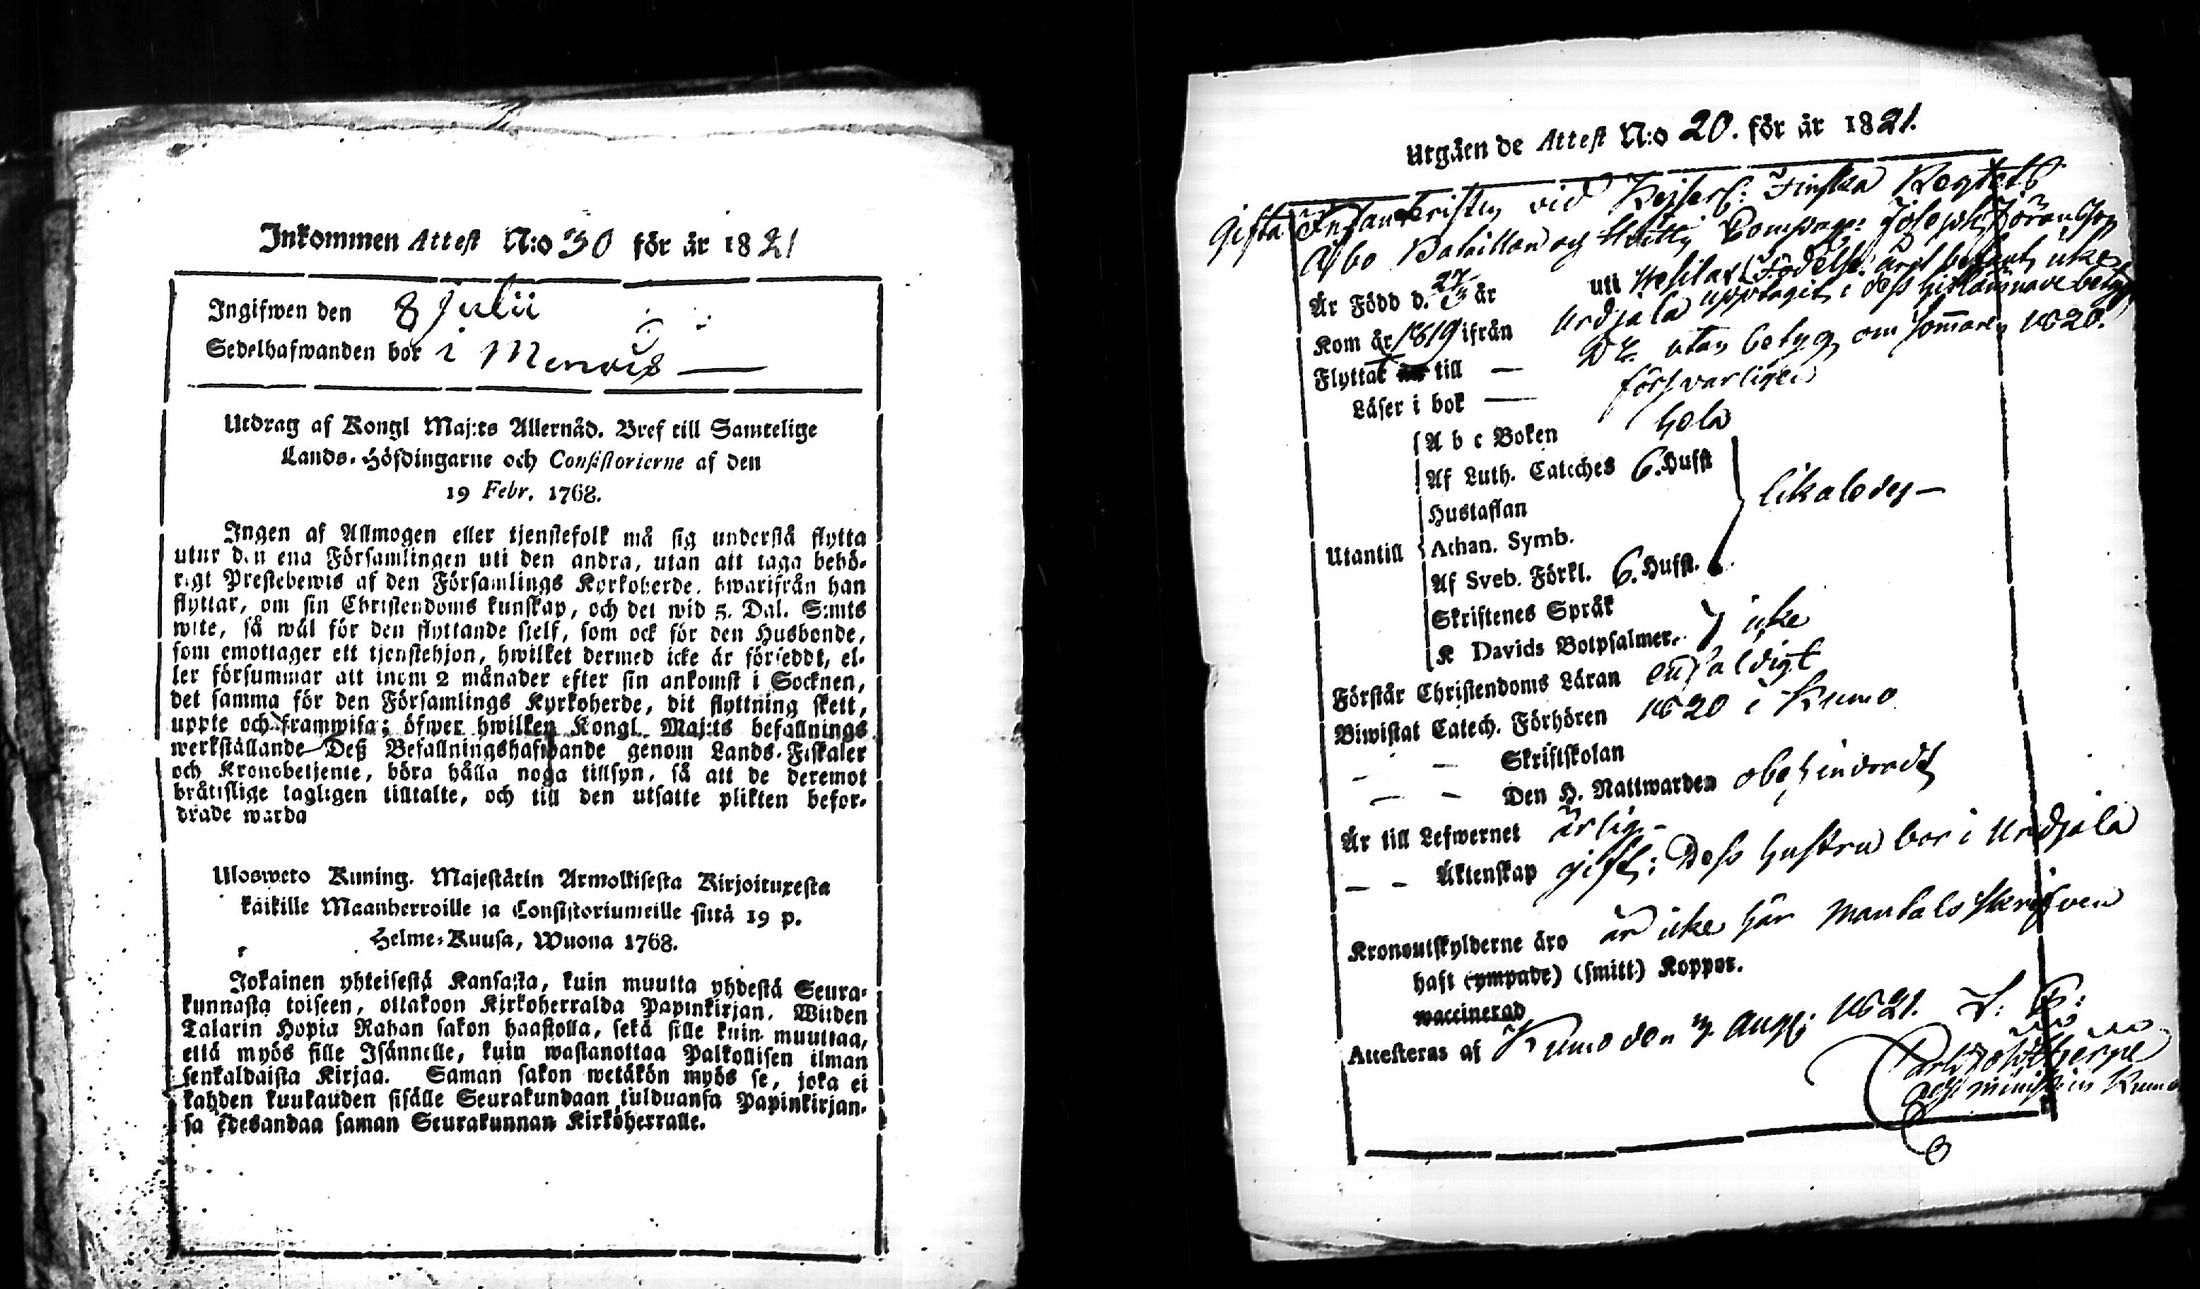 Inkommen Attest N:o 30 för år 1821
Ingifwen den 8 Julii
Sedelhafwanden bor i Menois
Utdrag af Kongl Maj:ts Allernåd. Bref till Samtelige
Lands-Höfdingarne och Consistorierne af den
19 Febr. 1768.
Ingen af Allmogen eller tjenstefolk må sig understå flytta
utur den ena Församlingen uti den andra, utan att taga behö-
rigt Prestebewis af den Församlings Kyrkoherde, hwarifrån han
flyttar, om sin Christendoms kunskap, och det wid 5. Dal. S:mts
wite, så wäl för den flyttande sjelf, som ock för den Husbonde,
som emottager ett tjenstehjon, hwilket dermed icke är försedt, el-
ler försummar att inom 2 månader efter sin ankomst i Socknen,
det samma för den Församlings Kyrkoherde, dit flyttning skett,
uppte och framwisa; öfwer hwilken Kongl. Maj:ts befallnings
werkställande Deß Befallningshafwande genom Lands-Fiskaler
och Kronobetjente, böra hålla noga tillsyn, så att de deremot
bråttslige lagligen tilltalte, och till den utsatte plikten befor-
drade warda
Ulosweto Kuning. Majestätin Armollisesta Kirjoituxesta
kaikille Maanherroille ja Consistoriumeille siitä 19 p.
Helme-Kuusa, Wuona 1768.
Jokainen yhteisestä Kansasta, kuin muutta yhdestä Seura-
kunnasta toiseen, ottakoon Kirkoherralda Papinkirjan, Wiiden
Talarin Hopia Rahan sakon haastolla, sekä sille kuin muuttaa,
että myös sille Isännelle, kuin wastanottaa Palkollisen ilman
senkaldaista Kirjaa. Saman sakon wetäkön myös se, joka ei
kahden kuukauden sisälle Seurakundaan tulduansa Papinkirjan-
sa edesandaa saman Seurakunnan Kirkoherralle.
Utgåen de Attest N:o 20. för år 1821.
Gifta Infanteristen vid Kejserl: Finska Regtets
Åbo Bataillon og Huittis Compag: Joseph Göransson
Är Född d. 27/3 år uti Wesilax (Födelse året bekant icke
Kom år 1819 ifrån Urdjala upptagit i dess hitkomne betyg
Flyttat till — utan betyg om sommaren 1820.
Läser i bok — försvarligen
Utantill
A b c Boken hela
Af Luth. Cateches 6. Hufst
Hustaflan
Athan. Symb. likaledes —
Af Sveb. Förkl. 6. Hufst.
Skriftenes Språk
K Davids Botpsalmer. icke
Förstår Christendoms Läran enfaldigt
Biwistat Catech. Förhören 1820 i Kumo
— — Skriftskolan
— — Den H. Nattwarden obehindradt
Är till Lefwernet ärlig —
— — Äktenskap gift: Dess hustru bor i Urdjala
Kronoutskylderne äro är icke här mantalsskrifven
haft (ympade) (smitt) Koppor.
waccinerad
Attesteras af Kumo den Aug 1821.
adj: minist: in Kumo